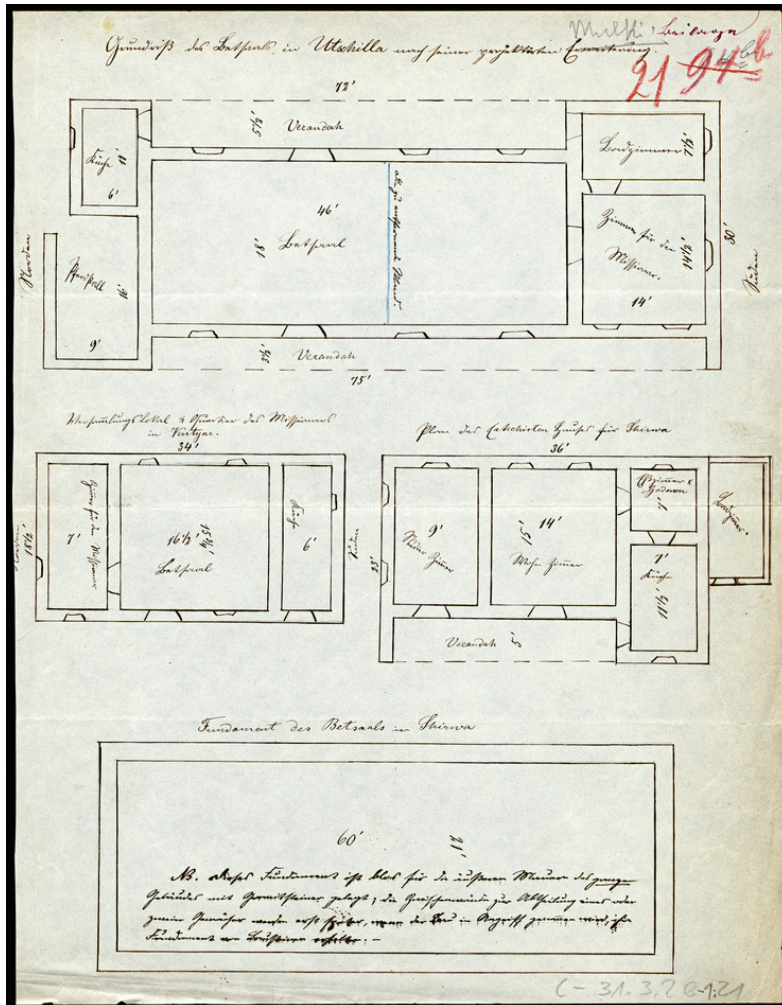 Mulki: Beilage
Grundriß des Betsaals in Utschilla nach seiner projektirten Erweiterung.
21 94 bb
72'
Verandah
Küche 11'
6'
Badzimmer
46'
Betsaal
18'
alte zu entfernende Wand.
Zimmer für den
Missionar.
14'
30'
Norden
Süden
Pferdstall
11'
9'
Verandah
75'
Versammlungslokal & Quartier des Missionars
in Kutyar.
34'
Norden
7'
Zimmer für den Missionar
16½' 15¼'
Betsaal
Küche
6'
Süden
Plan des Catechisten Hauses für Shirwa
36'
9'
Neben Zimmer
14'
15'
Wohn Zimmer
7'
7'
Küche
Badzimer.
Verandah 5'
Fundament des Betsaals in Shirwa
60' 21'
NB. Dieses Fundament ist blos für die äußeren Mauern des ganzen
Gebäudes mit Granitsteinen gelegt; die Zwischenwände zur Abtheilung eines oder
zweier Gemächer werden erst später, wenn der Bau in Angriff genommen wird, ihr
Fundament von Backsteinen erhalten. –
C-31.3.2 0121